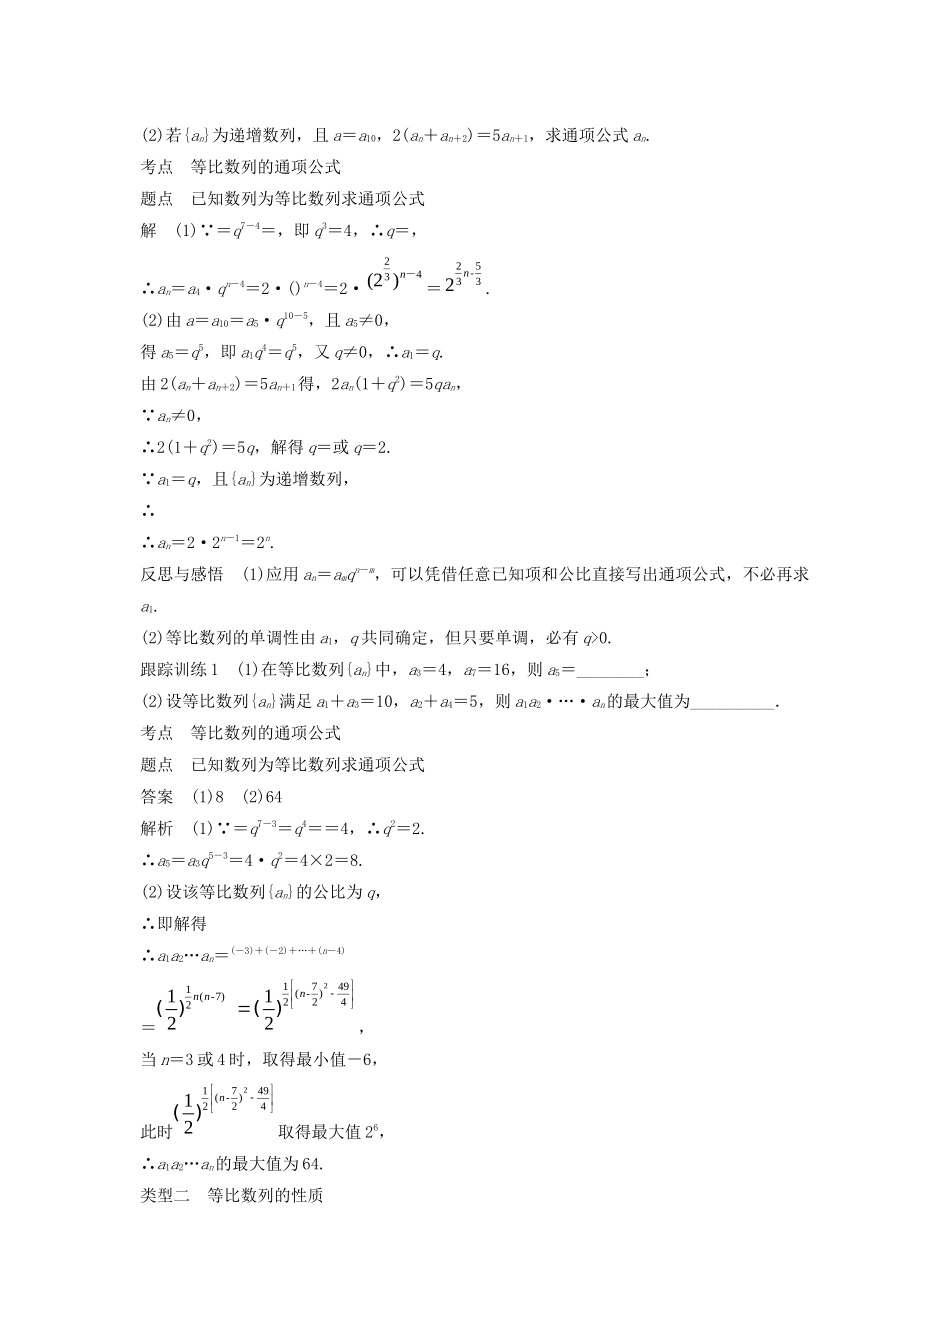 (2)若{aₙ}为递增数列，且 a＝a₁₀，2(aₙ＋aₙ₊₂)＝5aₙ₊₁，求通项公式 aₙ.
考点　等比数列的通项公式
题点　已知数列为等比数列求通项公式
解　(1)∵＝q⁷⁻⁴＝，即 q³＝4，∴q＝，
∴aₙ＝a₄·qⁿ⁻⁴＝2·()ⁿ⁻⁴＝2·(2^{2/3})^{n－4}＝2^{(2/3)n-5/3}.
(2)由 a＝a₁₀＝a₅·q¹⁰⁻⁵，且 a₅≠0，
得 a₅＝q⁵，即 a₁q⁴＝q⁵，又 q≠0，∴a₁＝q.
由 2(aₙ＋aₙ₊₂)＝5aₙ₊₁得，2aₙ(1＋q²)＝5qaₙ，
∵aₙ≠0，
∴2(1＋q²)＝5q，解得 q＝或 q＝2.
∵a₁＝q，且{aₙ}为递增数列，
∴
∴aₙ＝2·2ⁿ⁻¹＝2ⁿ.
反思与感悟　(1)应用 aₙ＝aₘqⁿ⁻ᵐ，可以凭借任意已知项和公比直接写出通项公式，不必再求
a₁.
(2)等比数列的单调性由 a₁，q 共同确定，但只要单调，必有 q>0.
跟踪训练 1　(1)在等比数列{aₙ}中，a₃＝4，a₇＝16，则 a₅＝________；
(2)设等比数列{aₙ}满足 a₁＋a₃＝10，a₂＋a₄＝5，则 a₁a₂·…·aₙ的最大值为__________.
考点　等比数列的通项公式
题点　已知数列为等比数列求通项公式
答案　(1)8　(2)64
解析　(1)∵＝q⁷⁻³＝q⁴＝＝4，∴q²＝2.
∴a₅＝a₃q⁵⁻³＝4·q²＝4×2＝8.
(2)设该等比数列{aₙ}的公比为 q，
∴即解得
∴a₁a₂…aₙ＝^{(－3)＋(－2)＋…＋(n－4)}
＝(1/2)^{(1/2)n(n-7)}＝(1/2)^{(1/2)[(n-7/2)²-49/4]}，
当 n＝3 或 4 时，取得最小值－6，
此时(1/2)^{(1/2)[(n-7/2)²-49/4]}取得最大值 2⁶，
∴a₁a₂…aₙ的最大值为 64.
类型二　等比数列的性质